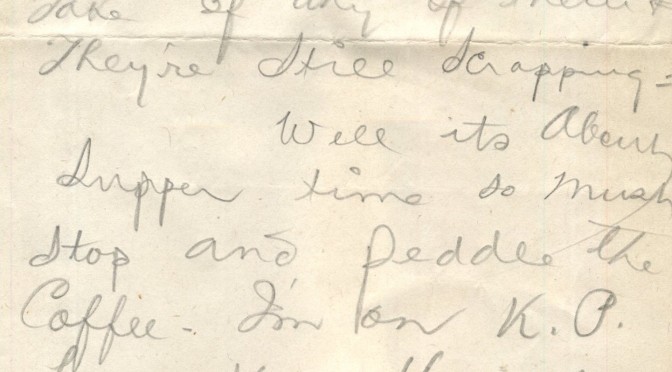 of any of
They're Still Scrapping -
Well its About
Supper time so Must
Stop and Peddle the
Coffee - I'm on K.P.